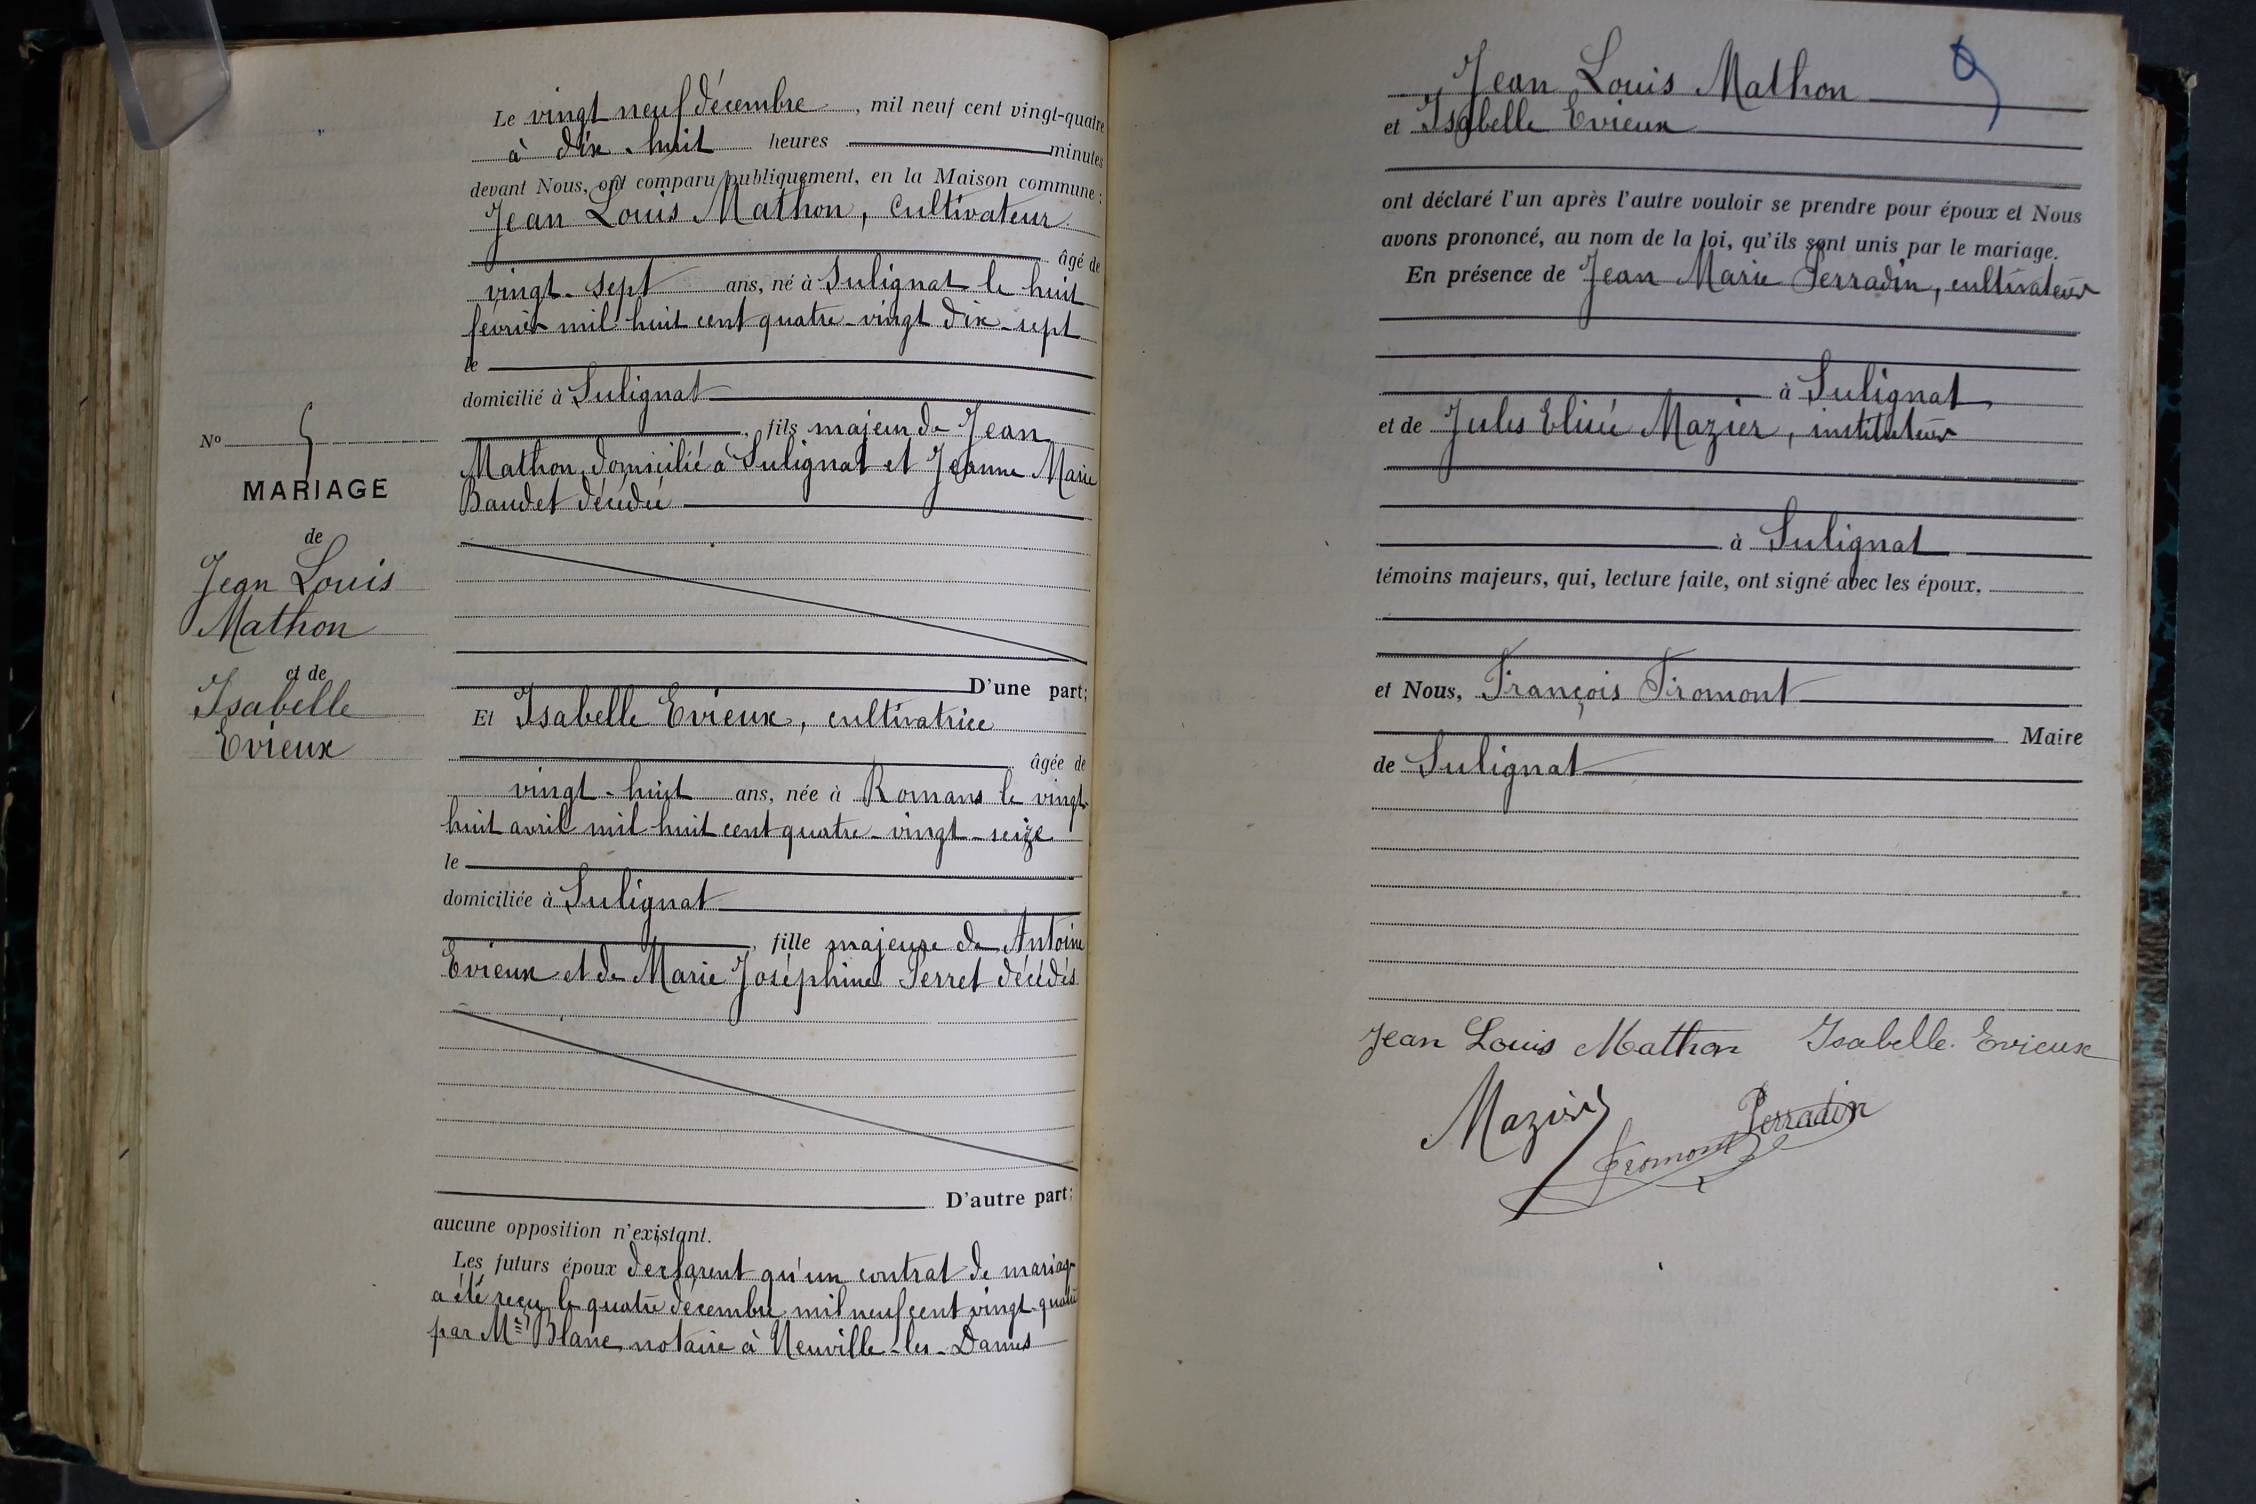 Le vingt neuf décembre, mil neuf cent vingt-quatre
à dix-huit heures minutes
devant Nous, ont comparu publiquement, en la Maison commune :
Jean Louis Mathon, cultivateur
âgé de
vingt-sept ans, né à Sulignat le huit
février mil huit cent quatre-vingt dix-sept
le
domicilié à Sulignat
, fils majeur de Jean
Mathon, domicilié à Sulignat et Jeanne Marie
Baudet décédée
D'une part;
Et Isabelle Evieux, cultivatrice
âgée de
vingt-huit ans, née à Romans le vingt-
huit avril mil huit cent quatre-vingt-seize
le
domiciliée à Sulignat
, fille majeure de Antoine
Evieux et de Marie Joséphine Perret décédés
D'autre part;
aucune opposition n'existant.
Les futurs époux déclarent qu'un contrat de mariage
a été reçu le quatre décembre mil neuf cent vingt-quatre
par Me Blanc, notaire à Neuville-les-Dames
No 5
MARIAGE
de
Jean Louis
Mathon
et de
Isabelle
Evieux
9
Jean Louis Mathon
et Isabelle Evieux
ont déclaré l'un après l'autre vouloir se prendre pour époux et Nous
avons prononcé, au nom de la loi, qu'ils sont unis par le mariage.
En présence de Jean Marie Perradin, cultivateur
à Sulignat
et de Jules Elisée Mazier, instituteur
à Sulignat
témoins majeurs, qui, lecture faite, ont signé avec les époux,
et Nous, François Fromont
Maire
de Sulignat
Jean Louis Mathon Isabelle Evieux
Mazier Perradin
Fromont